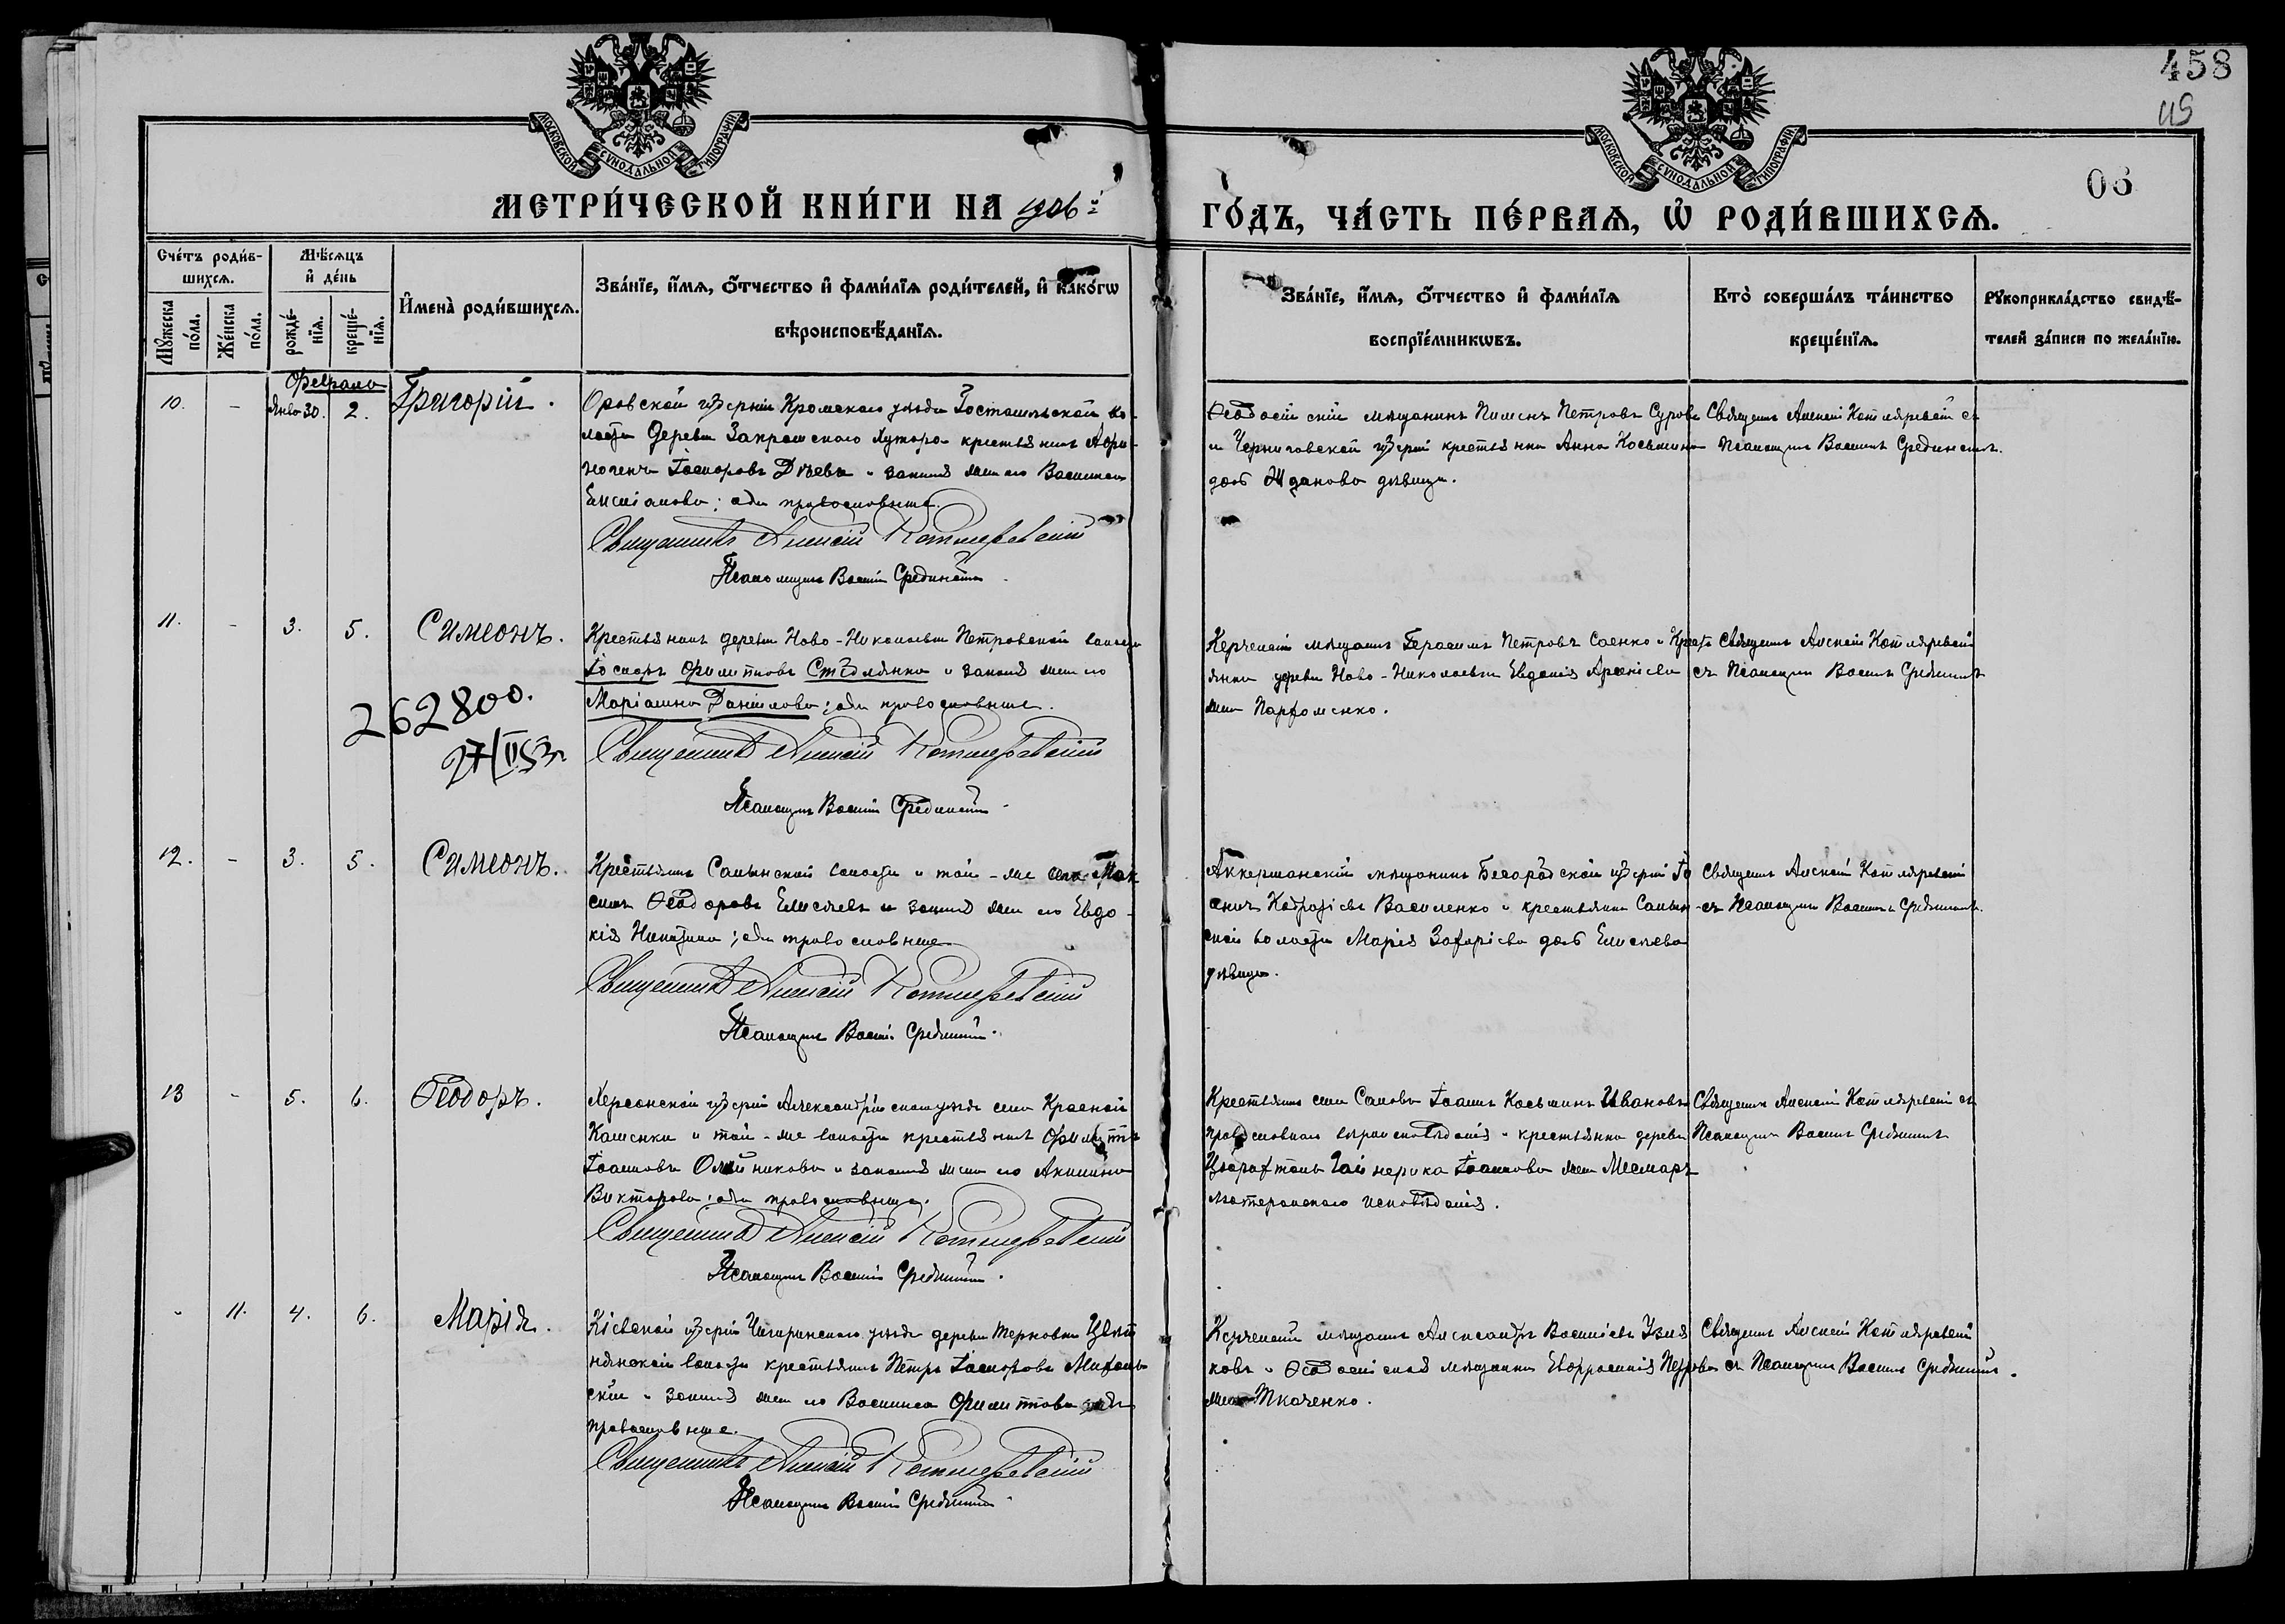 458
119
06
МОСКОВСКОЙ СѴНОДАЛЬНОЙ ТИПОГРАФІИ
МОСКОВСКОЙ СѴНОДАЛЬНОЙ ТИПОГРАФІИ
МЕТРИ́ЧЕСКОЙ КНИ́ГИ НА 1906й
ГО́ДЪ, ЧА́СТЬ ПЕ́РВАЯ, Ѡ҆ РОДИ́ВШИХСѦ.
Сче́тъ роди́вшихсѧ.
Мꙋ́жеска по́ла.
Же́нска по́ла.
Мѣ́сѧцъ и҆ де́нь
рожде́нїѧ.
креще́нїѧ.
И҆мена̀ роди́вшихсѧ.
Зва́нїе, и҆́мѧ, ѻ҆́тчество и҆ фами́лїѧ роди́телей, и҆ како́гѡ
вѣроисповѣ́данїѧ.
Зва́нїе, и҆́мѧ, ѻ҆́тчество и҆ фами́лїѧ
воспрїе́мникѡвъ.
Кто̀ соверша́лъ та́инство
креще́нїѧ.
Рꙋкоприкла́дство свидѣ́-
телей за́писи по жела́нїю.
Февраль
10. - Янв. 30. 2. Григорій.
Орловской губерніи Кромскаго уѣзда Гостомльской во-
лости деревни крестьянинъ
и законная жена его Василиса
оба православные.
Священникъ Алексій Котляревскій
Псаломщикъ Василій Срединскій
Ѳеодосійскій мѣщанинъ Пименъ Петровъ Суровъ
и Черниговской губерніи крестьянка Анна Косьмина
дочь Жданова дѣвица.
Священникъ Алексій Котляревскій съ
Псаломщикомъ Василіемъ Срединскимъ.
11. - 3. 5. Симеонъ.
Крестьянинъ деревни Ново-Николаевки Петровской волости
Іосифъ Филипповъ и законная жена его
Маріамна Даніилова; оба православные.
Священникъ Алексій Котляревскій
Псаломщикъ Василій Срединскій
262800.
27/II 53г
Керченскій мѣщанинъ Герасимъ Петровъ Саенко и Кресть-
янка деревни Ново-Николаевки Евгенія Арсеніева
жена Пархоменко.
Священникъ Алексій Котляревскій
съ Псаломщикомъ Василіемъ Срединскимъ
12. - 3. 5. Симеонъ.
Крестьянинъ Салынской волости и той-же села Мак-
симъ Ѳеодоровъ Елисеевъ и законная жена его Евдо-
кія Никитина; оба православные
Священникъ Алексій Котляревскій
Псаломщикъ Василій Срединскій.
Аккерманскій мѣщанинъ Бессарабской губерніи
Василенко и крестьянка Салын-
ской волости Марія Захаріева дочь Елисеева
дѣвица.
Священникъ Алексій Котляревскій
съ Псаломщикомъ Василіемъ Срединскимъ.
13 - 5. 6. Ѳеодоръ.
Херсонской губерніи Александрійскаго уѣзда села Красной
Каменки и той-же волости крестьянинъ Филиппъ
Іоанновъ Олейниковъ и законная жена его Акилина
Викторова; оба православные.
Священникъ Алексій Котляревскій
Псаломщикъ Василій Срединскій.
Крестьянинъ села Салова Іоаннъ Косьминъ Ивановъ
православнаго вѣроисповѣданія и крестьянка деревни
Іоаннова жена
лютеранскаго исповѣданія.
Священникъ Алексій Котляревскій съ
Псаломщикомъ Василіемъ Срединскимъ
- 11. 4. 6. Марія.
Кіевской губерніи Чигиринскаго уѣзда деревни Терновки Цвѣт-
нянской волости крестьянинъ Петръ
и законная жена его Василиса Филиппова оба
православные.
Священникъ Алексій Котляревскій
Псаломщикъ Василій Срединскій
Керченскій мѣщанинъ Александръ Василіевъ
ковъ и Ѳеодосійская мѣщанка Евфросинія Петрова
жена Ткаченко.
Священникъ Алексій Котляревскій
съ Псаломщикомъ Василіемъ Срединскимъ.